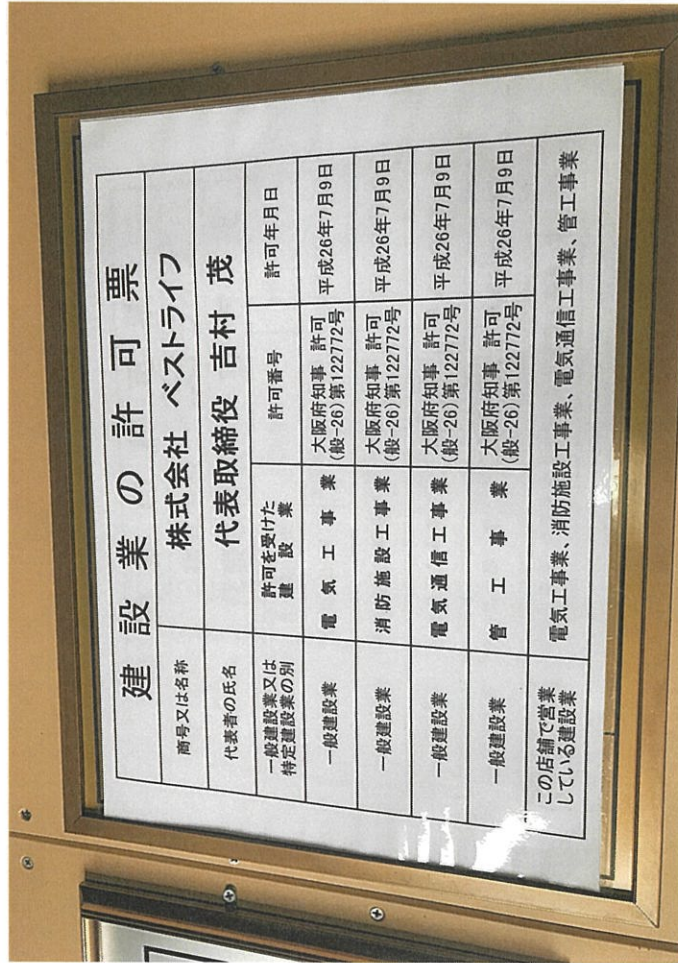 建設業の許可票
商号又は名称 株式会社 ベストライフ
代表者の氏名 代表取締役 吉村 茂
一般建設業又は
特定建設業の別
許可を受けた
建設業
許可番号
許可年月日
一般建設業
電気工事業
大阪府知事 許可
(般-26)第122772号
平成26年7月9日
一般建設業
消防施設工事業
大阪府知事 許可
(般-26)第122772号
平成26年7月9日
一般建設業
電気通信工事業
大阪府知事 許可
(般-26)第122772号
平成26年7月9日
一般建設業
管工事業
大阪府知事 許可
(般-26)第122772号
平成26年7月9日
この店舗で営業
している建設業
電気工事業、消防施設工事業、電気通信工事業、管工事業